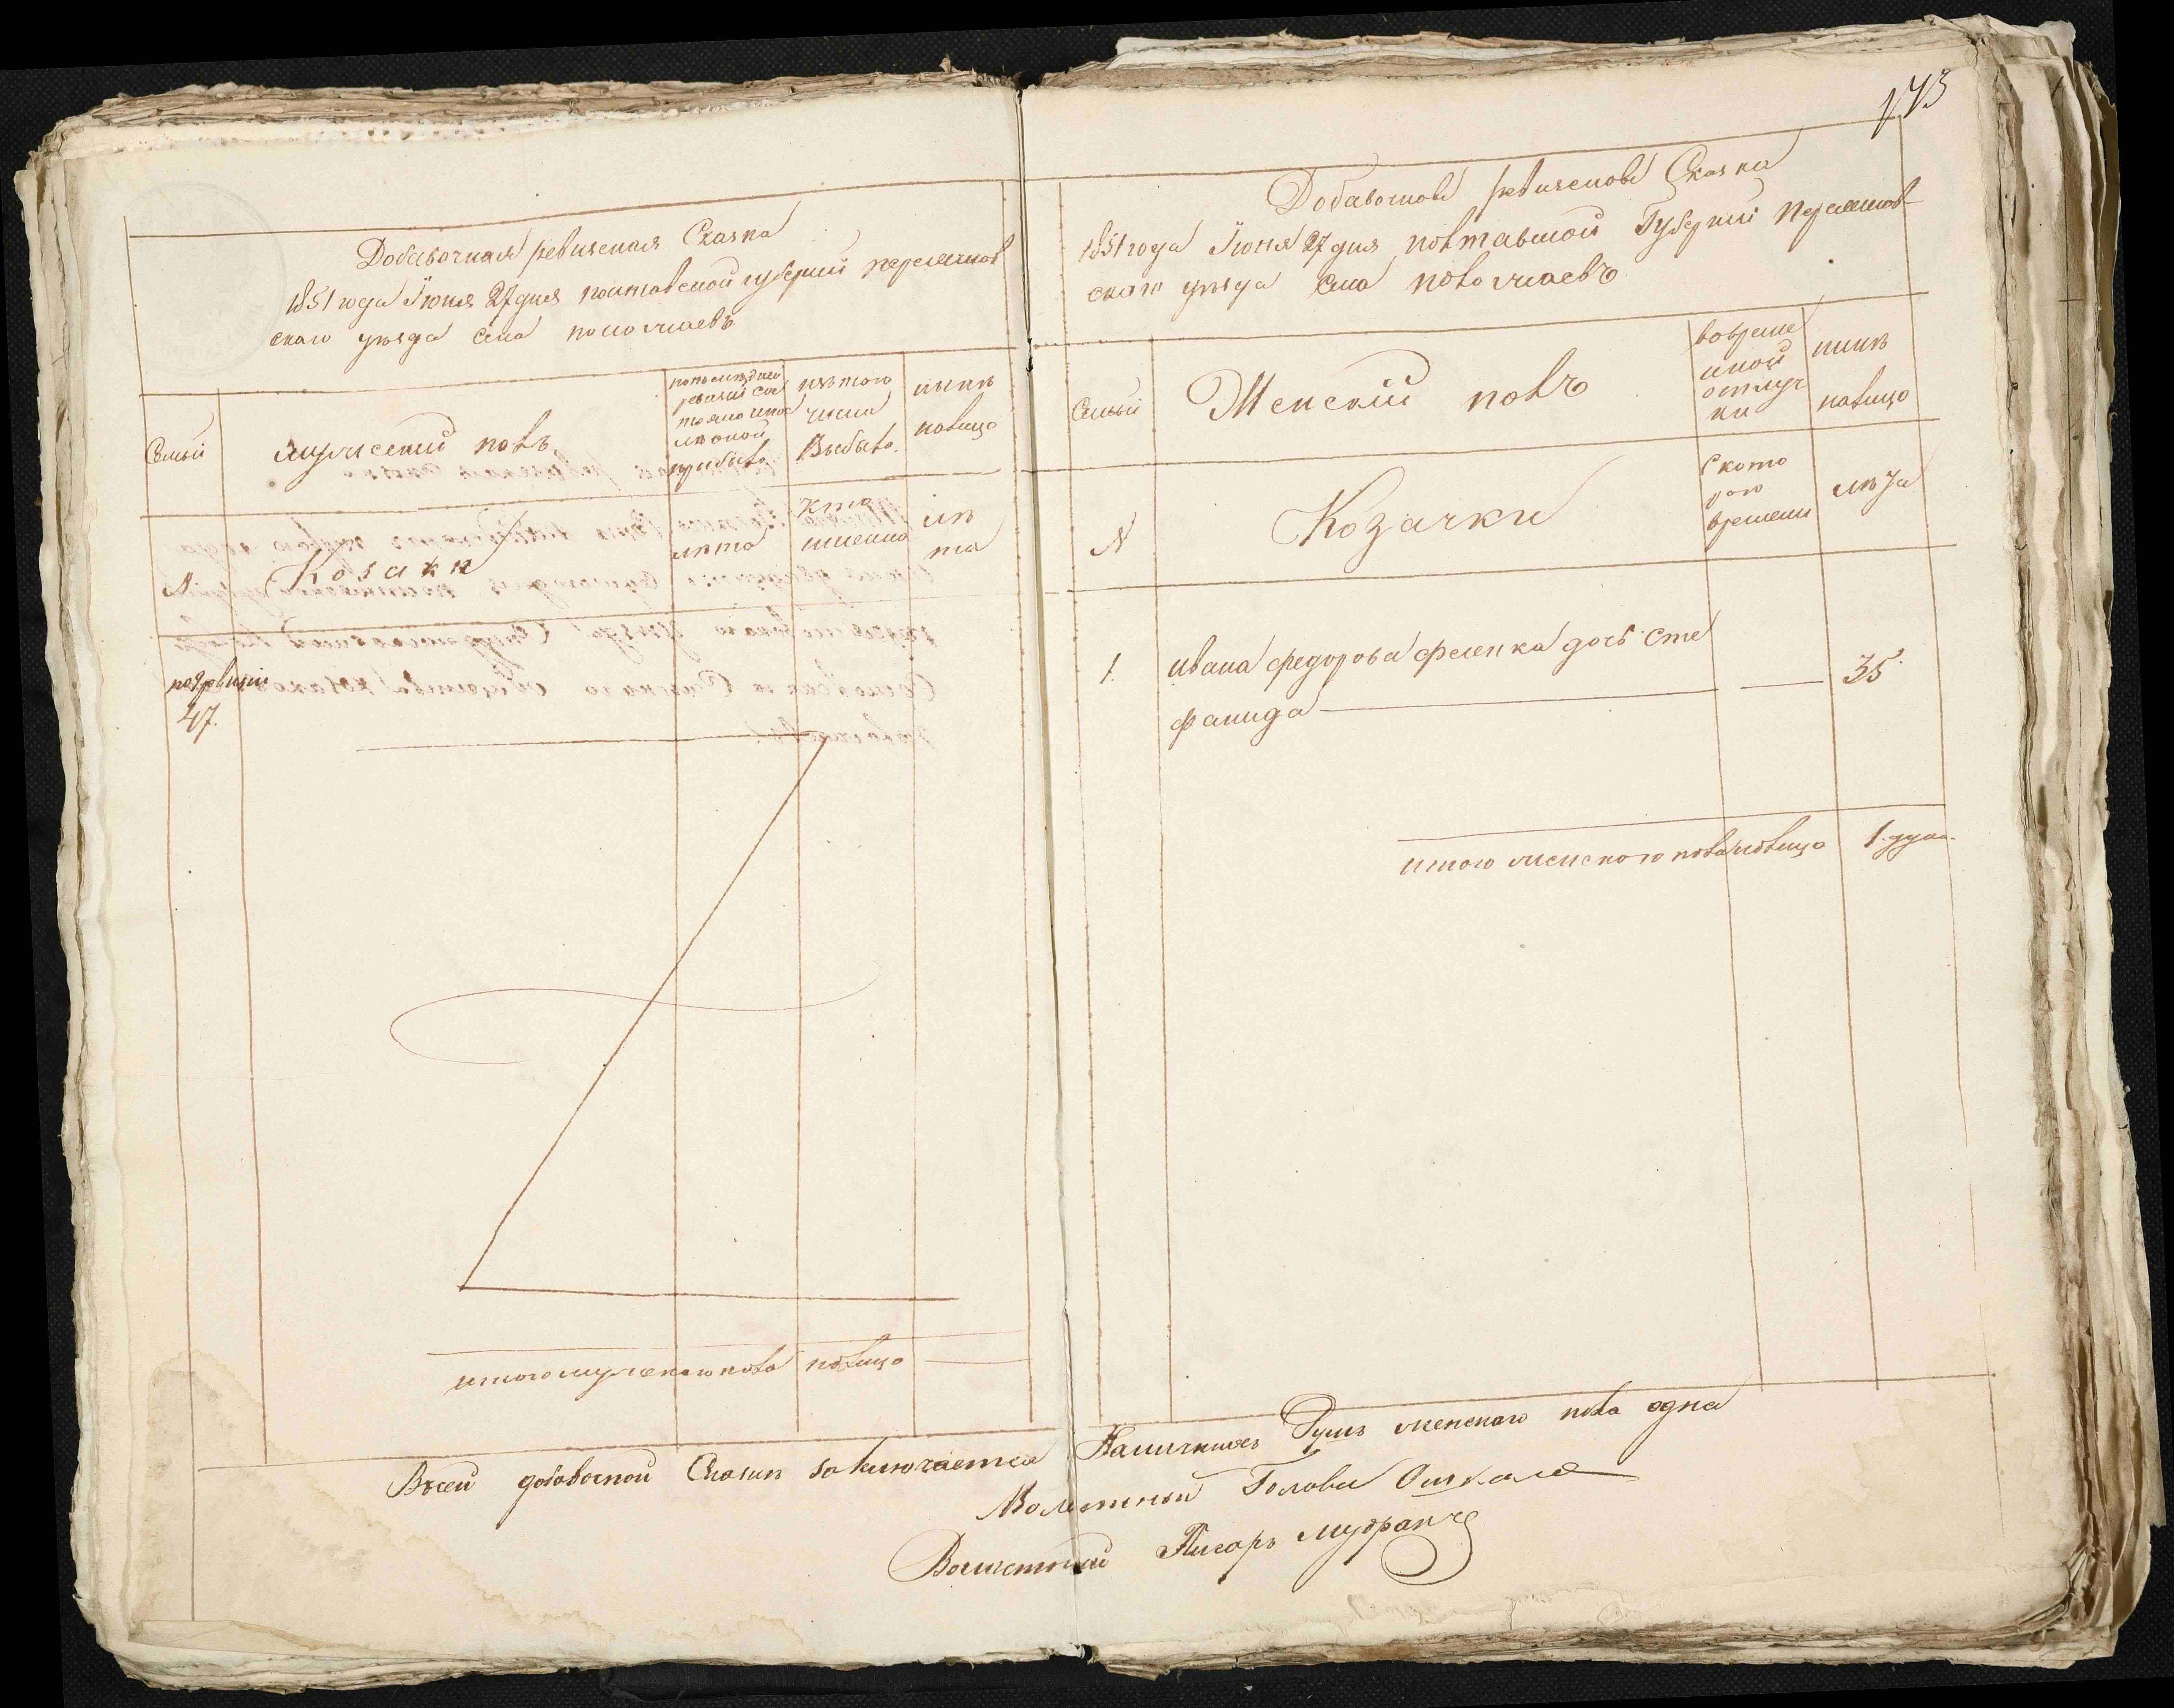 173
Добавочная ревизская Сказка
1851 года Июня 27 дня полтавской губерніи переяслов
скаго уѣзда села
Семьи
мужеский полъ
по последней
ревизіи со
стояло и по
слѣ оной
прибыло
изъ того
числа
Выбыло
нынѣ
налицо
№
Козаки
лѣта
кто
именно
лѣ
та
по ревизіи
47.
итого мужескаго пола налицо
Добавочная ревизская Сказка
1851 года Июня 27 дня полтавской Губерніи Переяслов
скаго уѣзда села
Семьи
Женский полъ
во време
нной
отлуч
ки
нынѣ
налицо
№
Козачки
Ското
раго
времени
лѣта
1.
ивана федорова фесенка дочь Сте
фанида
35
итого женскаго пола налицо
1. душа.
Въ сей добавочной Сказкѣ заключается Наличныхъ Душъ женскаго пола одна
Волостный Голова
Волостный Писарь